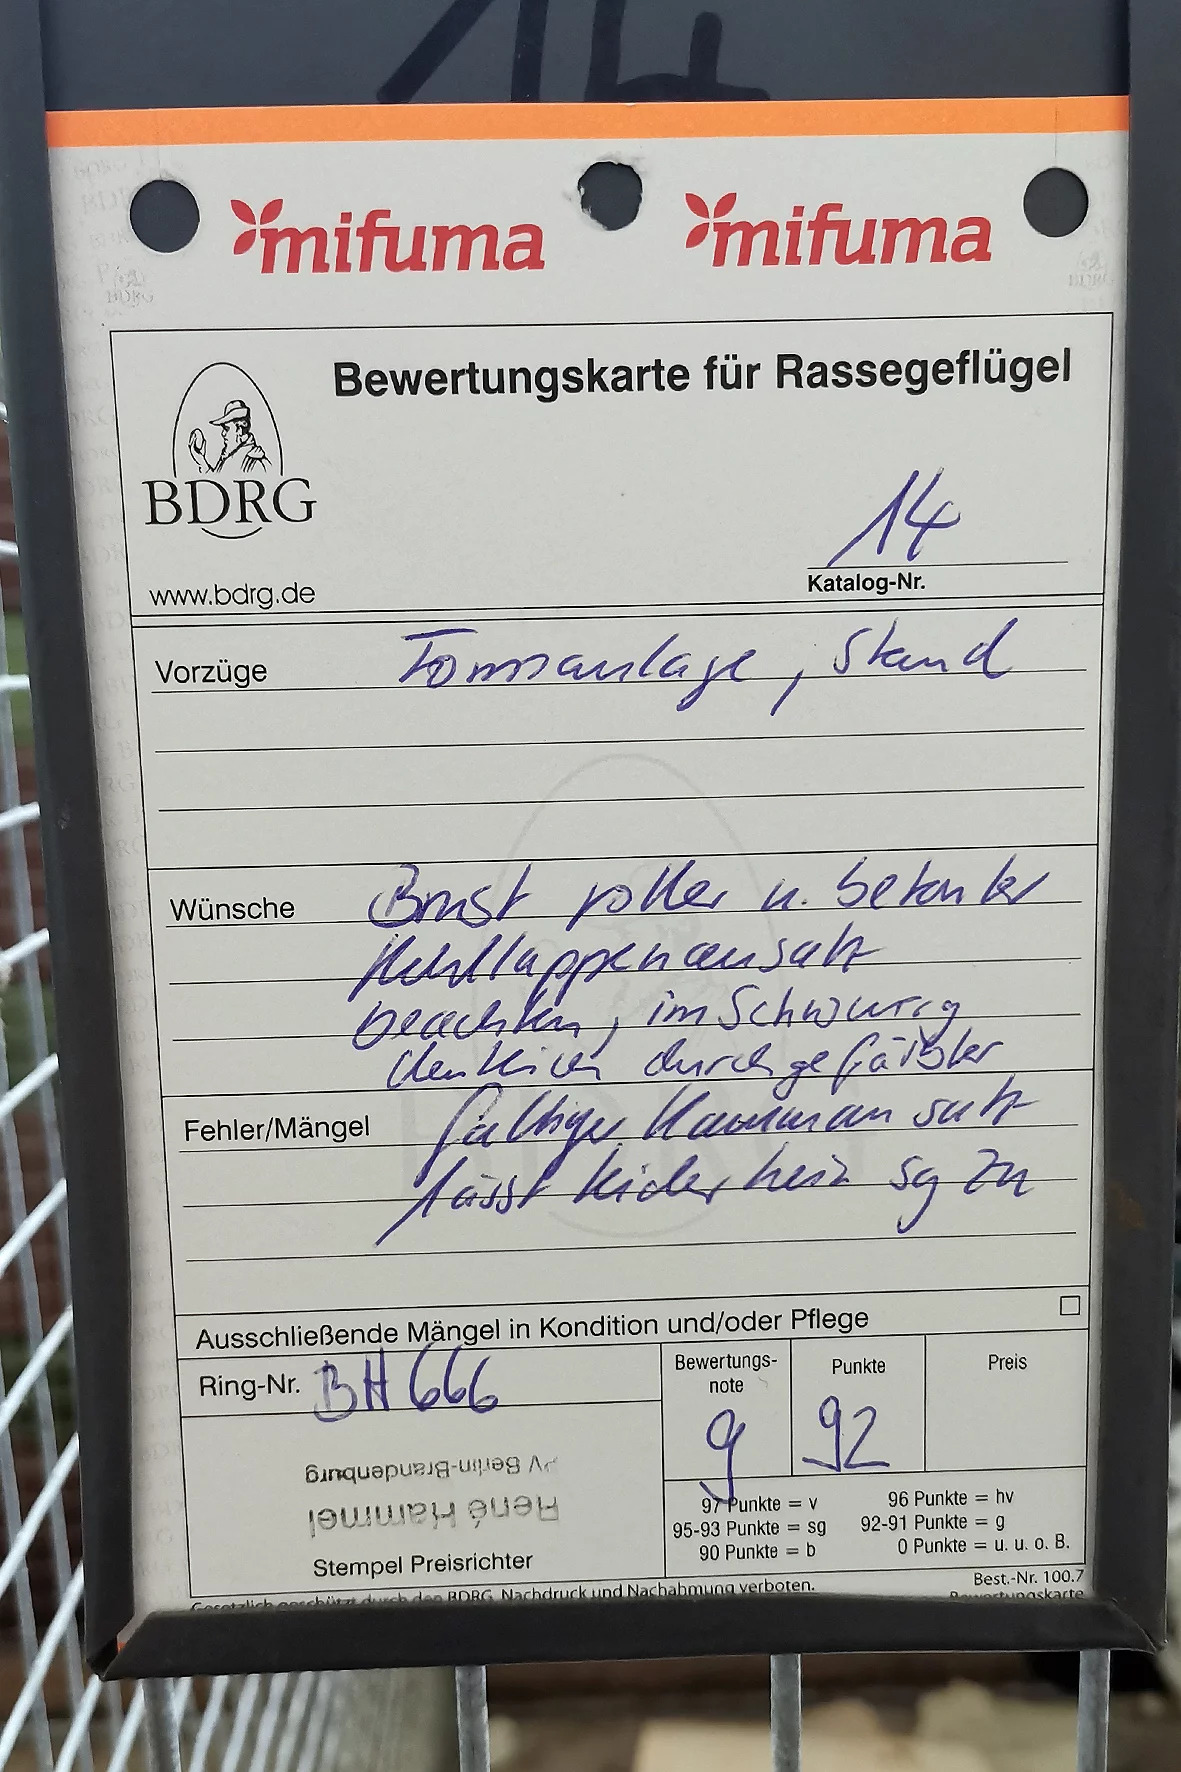 14
mifuma mifuma
Bewertungskarte für Rassegeflügel
BDRG
www.bdrg.de
14
Katalog-Nr.
Vorzüge Formanlage, Stand
Wünsche Brust voller u. betonter
Kehllappenansatz
beachten, im Schwung
deutlich durchgefärbter
Fehler/Mängel faltiger Kammansatz
lässt leider kein sg zu
Ausschließende Mängel in Kondition und/oder Pflege
Ring-Nr. BH 666
Bewertungs-
note
g
Punkte
92
Preis
PV Berlin-Brandenburg
René Hammel
Stempel Preisrichter
97 Punkte = v 96 Punkte = hv
95-93 Punkte = sg 92-91 Punkte = g
90 Punkte = b 0 Punkte = u. u. o. B.
Gesetzlich geschützt durch den BDRG. Nachdruck und Nachahmung verboten.
Best.-Nr. 100.7
Bewertungskarte